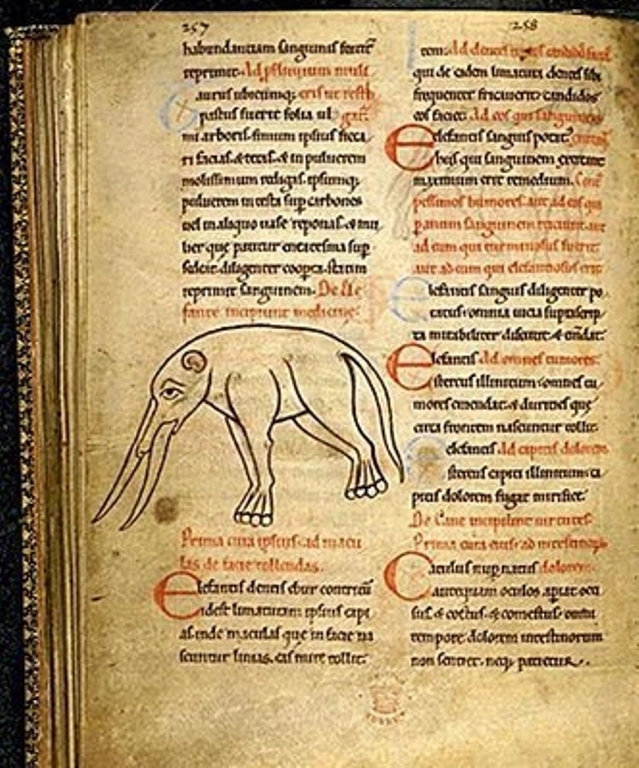 257
habundantiam sanguinis fortit
reprimit. Ad
ubicumq; fuerit
pastus fuerit folia ul
arboris. fimum ipsius sicca
ri facias. & teras. & in puluerem
mollissimum redigas. ipsumq;
puluerem in testa sup carbones
uel in aliquo uase reponas. & mu
lier que patitur sup
sedeat. diligenter cooperta. statim
reprimit sanguinem. De Ele
fante incipiunt medicine.
Prima cura ipsius. ad macu
las de facie tollendas.
Elefantis dentis ebur
idest limaturam ipsius capi
inde maculas que in facie na
scuntur linias. eas mire tollit.
258
Item. Ad dentes candidos
qui de eadem limatura dentes sibi
frequenter fricuerit. candidos
eos faciet. Ad eos qui sanguinem
Elefantis sanguis potat
heis qui sanguinem
maximum erit remedium.
pessimos humores. aut ad eos qui
sanguinem reiciunt. aut
ad eum qui fuerit
aut ad eum qui elefantiosus erit
Elefantis sanguis diligenter po
tatus. omnia uicia suprascrip
ta mirabiliter discutit. & emdat.
Elefantis Ad omnes tumores.
stercus illinitum. omnes tu
mores emendat. & duricies que
circa frontem nascuntur tollit.
Elefantis Ad capitis dolorem
stercus capiti illinitum ca
pitis dolorem fugat mirifice.
De Cane incipiunt
Prima cura eius. ad intestinorum
Catulus nup natus dolorem.
antequam oculos apiat occi
sus. & coctus. & comestus. omni
tempore dolorem intestinorum
non sentiet. neq; patietur.